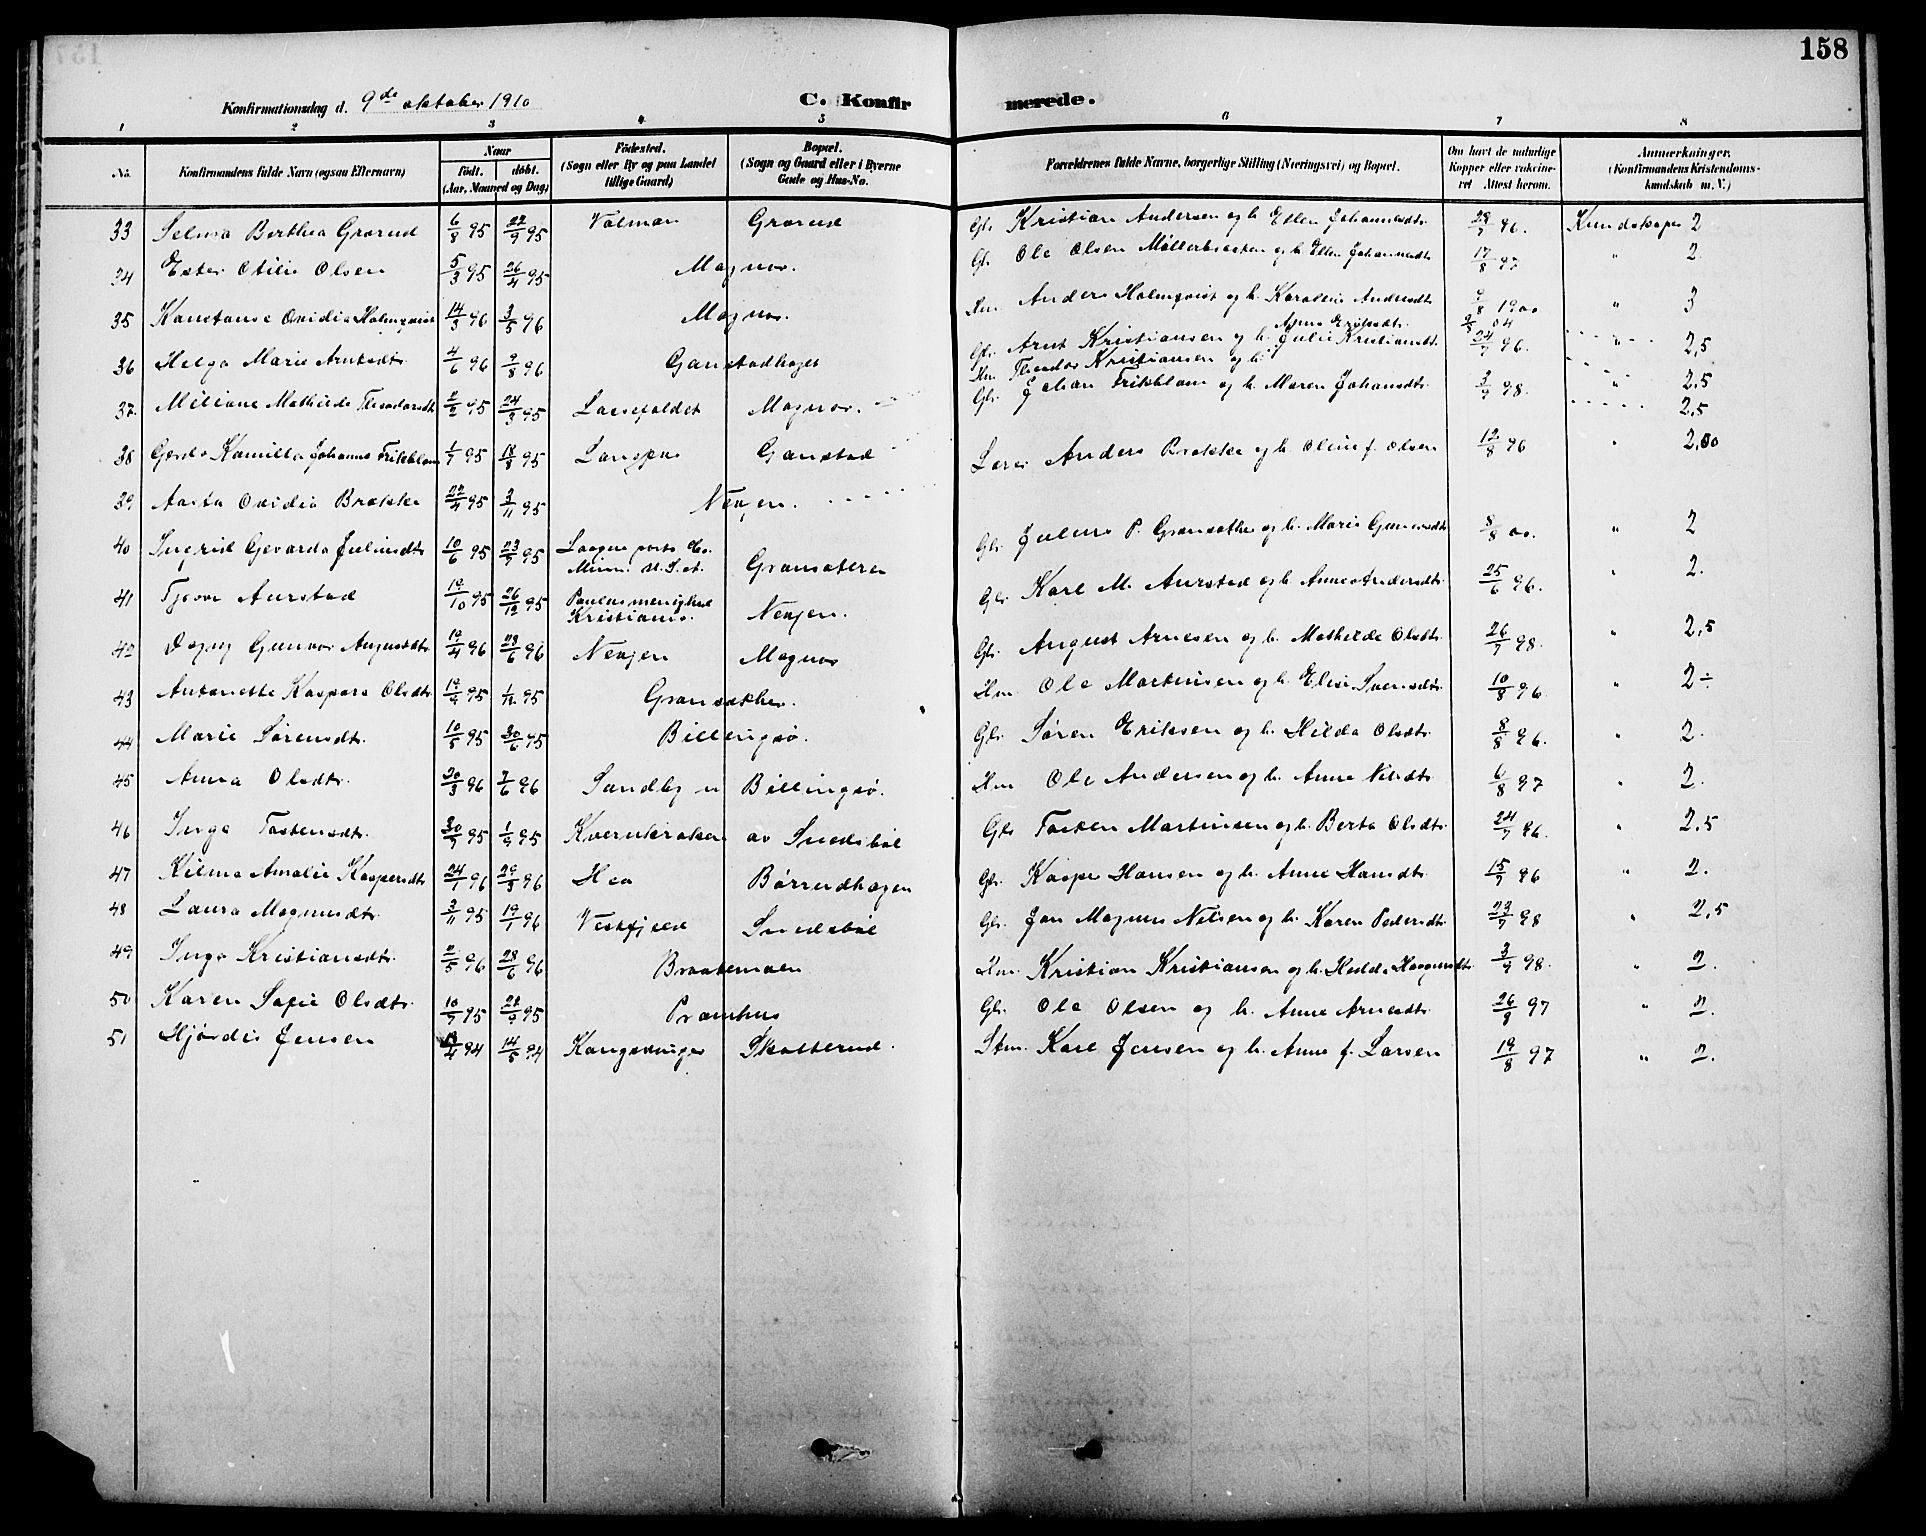 158
Konfirmationsdag d. 9de oktober 1910
C. Konfirmerede.
1 2 3 4 5 6 7 8
No. Konfirmandens fulde Navn (ogsaa Efternavn) Naar født. døbt. (Aar, Maaned og Dag) Födested. (Sogn eller By og paa Landet tillige Gaard) Bopæl. (Sogn og Gaard eller i Byerne Gade og Hus-No. Forældrenes fulde Navne, borgerlige Stilling (Næringsvei) og Bopæl. Om havt de naturlige Kopper eller vaccineret Attest herom. Anmærkninger, (Konfirmandens Kristendomskundskab m. V.)
33 Selma Berthea Grorud 6/8 95 22/9 95 Valman Grorud Gbr. Kristian Andersen og h. Ellen Johannesdtr. 28/7 96. Kundskaper 2
34 Ester Otilie Olsen 5/3 95 26/4 95 Magnor. Gbr. Ole Olsen Møllerbraaten og h. Ellen Johannesdtr 17/8 97 " 2.
35 Konstanse Ovidia Holmqvist 14/3 96 3/5 96 Magnor. Hm Anders Holmqvist og h. Karoline Andersdtr 1900 " 3
36 Helga Marie Arntsdtr. 4/6 96 9/8 96 Ganstadhaget Gbr. Arnt Kristiansen og h. Julie Kristiansdtr. 24/7 96. " 2,5
37. Miliane Mathilde Theodorsdtr 2/2 95 24/3 95 Magnor. Hm Theodor Kristiansen og h. Agnes Eriksdtr. 04 2,5
38 Gerda Kamilla Johanne Frikblom 1/7 95 18/8 95 Ganstad Gbr. Johan Frikblom og h. Maren Johansdtr. 3/9 98. " 2,5
39 Aasta Ovidia Brække 22/4 95 3/11 95 Nexjen. Lærer Anders Brække og h. Oline f. Olsen 12/8 96 " 2,00
40 Ingrid Gevarda Juliusdtr 10/6 95 23/7 95 Minn. U.S.A. Gransæteren Gbr. Julius P. Gransæther og h. Marie Gunnersdtr 8/8 00. " 2
41 Tjovor Aurstad 19/10 95 26/12 95 Paulus menighed Kristiania. Nexjen. Gbr. Karl M. Aurstad og h. Anne Andersdtr. 25/6 96. " 2.
42 Dagny Gunvor Augustdtr. 19/4 96 28/6 96 Nexjen Magnor Gbr. August Arnesen og h. Mathilde Olsdtr. 26/7 98. " 2,5
43 Antonette Kaspara Olsdtr. 19/9 95 1/12 95 Gransæther. Hm Ole Martinsen og h. Elise Svensdtr. 10/8 96. " 2÷
44 Marie Sørensdtr. 10/5 95 30/6 95 Billingsø. Gbr. Søren Eriksen og h. Hilda Olsdtr. 8/8 96. " 2.
45 Anna Olsdtr. 30/3 96 7/6 96 Sandby u Billingsø. Hm Ole Andersen og h. Anne Nilsdtr. 6/8 97 " 2.
46 Inga Tostensdtr. 30/7 95 1/9 95 Kvernkroken av Snedsbøl Gbr Tosten Martinsen og h. Berte Olsdtr. 24/7 96. " 2,5
47 Kilma Amalie Kaspersdtr 24/1 96 29/3 96 Hea Børrudhagen Gbr. Kasper Hansen og h. Anne Hansdtr. 15/7 96 " 2.
48 Laura Magnusdtr. 3/11 95 19/1 96 Vestfjeld Snedsbøl Gbr. Jan Magnus Nilsen og h. Karen Pedersdtr. 23/7 98 " 2,5
49 Inga Kristiansdtr. 2/5 96 28/6 96 Braatemoen Hm. Kristian Kristiansen og h. Hulda Haagensdtr. 3/9 98. " 2.
50 Karen Sofie Olsdtr. 10/7 95 22/9 95 Pramhus Gbr. Ole Olsen og h. Anne Arnesdtr. 26/8 97 " 2.
51 Hjørdis Jensen 94 14/5 94 Kongsvinger Skotterud. Stm. Karl Jensen og h. Anne f. Larsen 19/8 97 " 2.